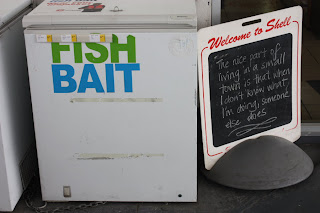 FISH
BAIT
Welcome to Shell
The nice part of
living in a small
town is that when
I don't know what
I'm doing, someone
else does